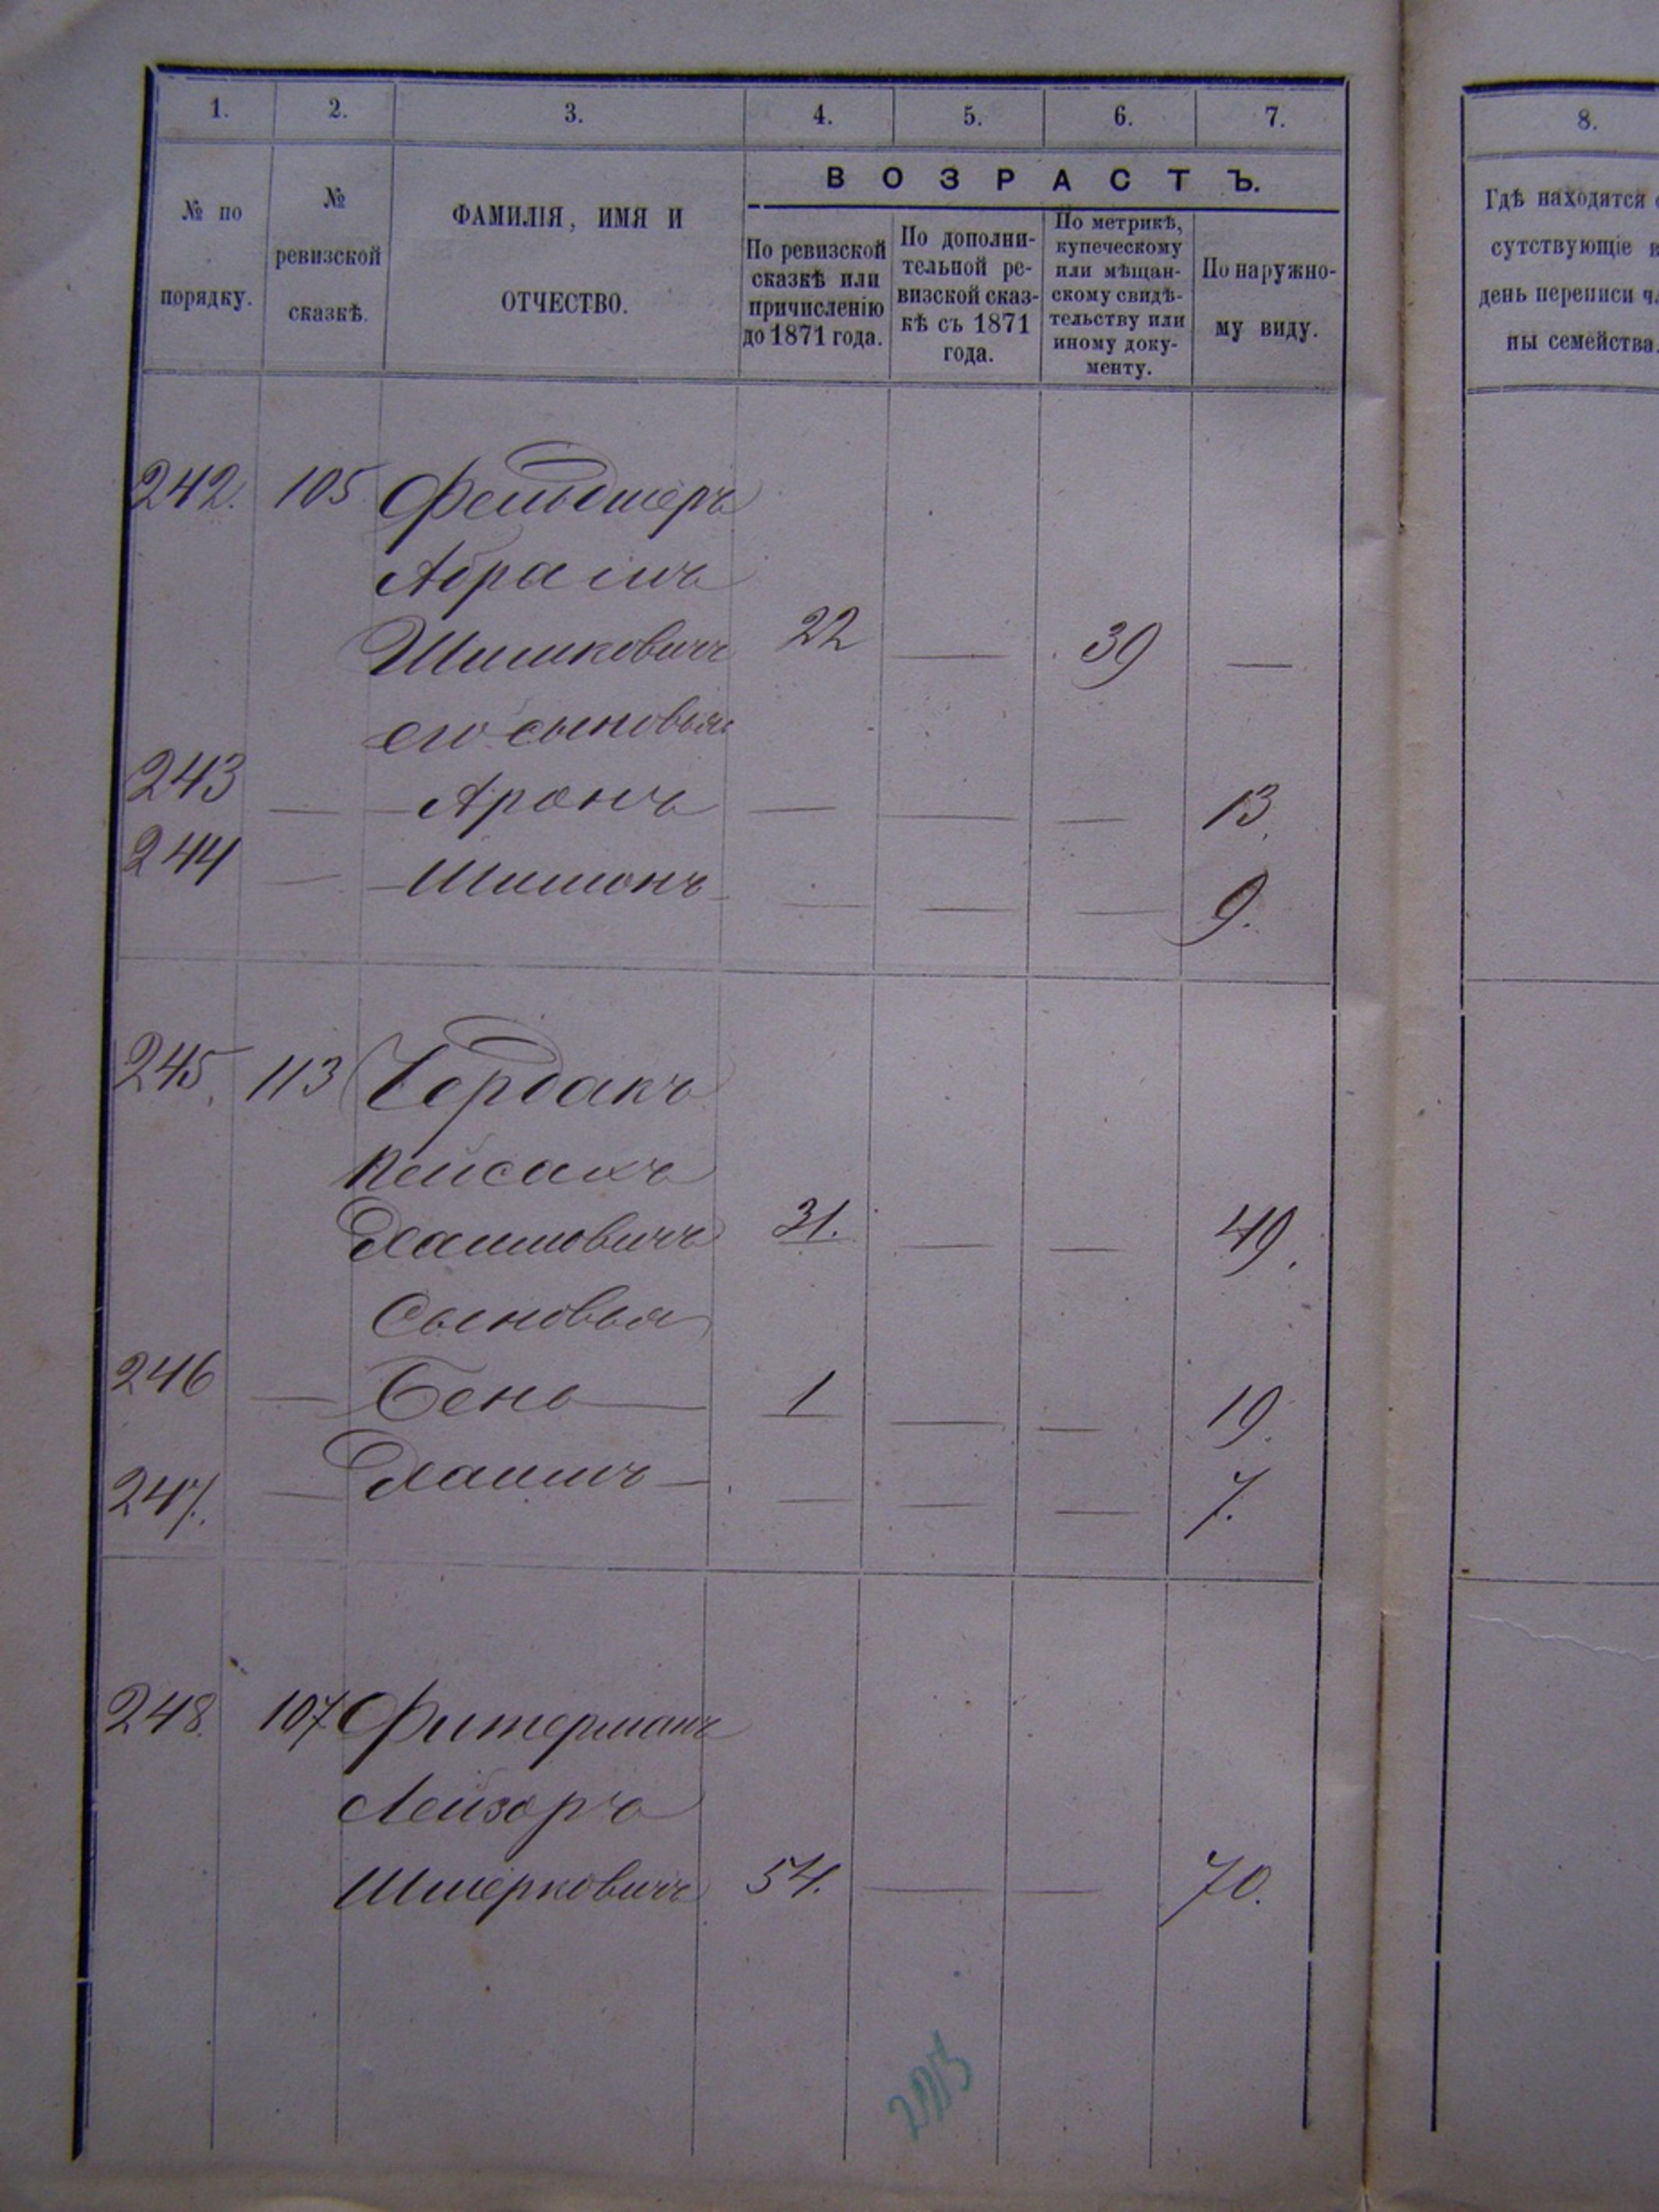 1. 2. 3. 4. 5. 6. 7.
№ по порядку.
№ ревизской сказкѣ.
ФАМИЛІЯ, ИМЯ И
ОТЧЕСТВО.
ВОЗРАСТЪ.
По ревизской
сказкѣ или
причисленію
до 1871 года.
По дополни-
тельной ре-
визской сказ-
кѣ съ 1871
года.
По метрикѣ,
купеческому
или мѣщан-
скому свидѣ-
тельству или
иному доку-
менту.
По наружно-
му виду.
242. 105 Фельдшеръ
Абрамъ
Шимковичъ 22 — 39 —
его сыновья
243 — Аронъ — — — 13.
244 — Шимонъ — — — 9.
245. 113 Чердакъ
Пейсахъ
Хаимовичъ 31. — — 49.
Сыновья
246 — Бено — 1 — — 19.
247. — Хаимъ — — — — 7.
248. 107 Фитерманъ
Лейзоръ
Шмерковичъ 54. — — 70.
8.
Гдѣ находятся
сутствующіе
день переписи
ны семейства.